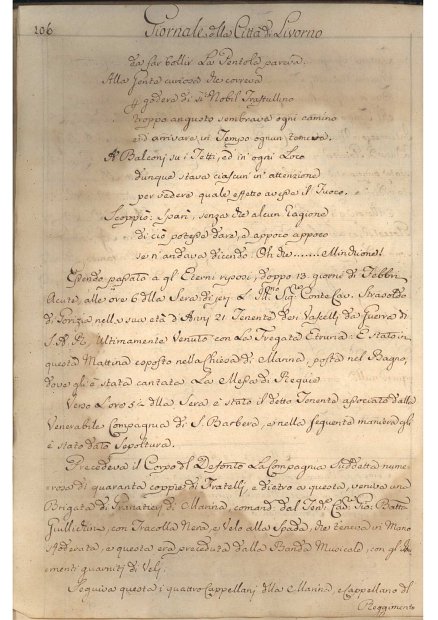 106 Giornale della Città di Livorno
da far bollir La Pentola pareva.
Alla Gente curiosa che correva
p godere di sì Nobil Trastullino
troppo angusto sembrava ogni camino
ed arrivare in Tempo ognun temeva.
A' Balconi su i Tetti, ed in ogni Loco
dunque stava ciascun in attenzione
per vedere quale effetto avesse il Fuoco.
Scoppiò: Sparì, senza che alcun Ragione
di ciò potesse dare, a appoco appoco
se n'andava dicendo: Oh che
Essendo passato a gl'Eterni riposi, doppo 13 giorni di Febbri
Acute, alle ore 6 della Sera di jeri L'Ill.mo Sig.re Conte Cav. Strasoldo
di Gorizia nella sua età d'Anni 21 Tenente de' Vascelli da Guerra di
S. A. R. Ultimamente Venuto con La Fregata Etruria: È Stato in
questa Mattina esposto nella Chiesa di Marina, posta nel Bagno,
dove gl'è stata cantata La Messa di Requie
Verso L'ore 5½ della Sera è stato il detto Tenente associato dalla
Venerabile Compagnia di S. Barbera, e nella seguente maniera gli
è stato dato Sepoltura.
Precedeva il Corpo del Defonto La Compagnia Suddetta nume-
rosa di quaranta coppie di Fratelli, e dietro a questa, veniva una
Brigata di Granatieri di Marina, comand. dal Ten. Cad. Gio: Batta
con Tracolla Nera, e Velo alla Spada, che teneva in Mano
e questa era preceduta dalla Banda Musicale, con gl'Istru-
menti guarniti di Veli.
Seguiva questa i quattro Cappellani della Marina, e Cappellano del
Reggimento